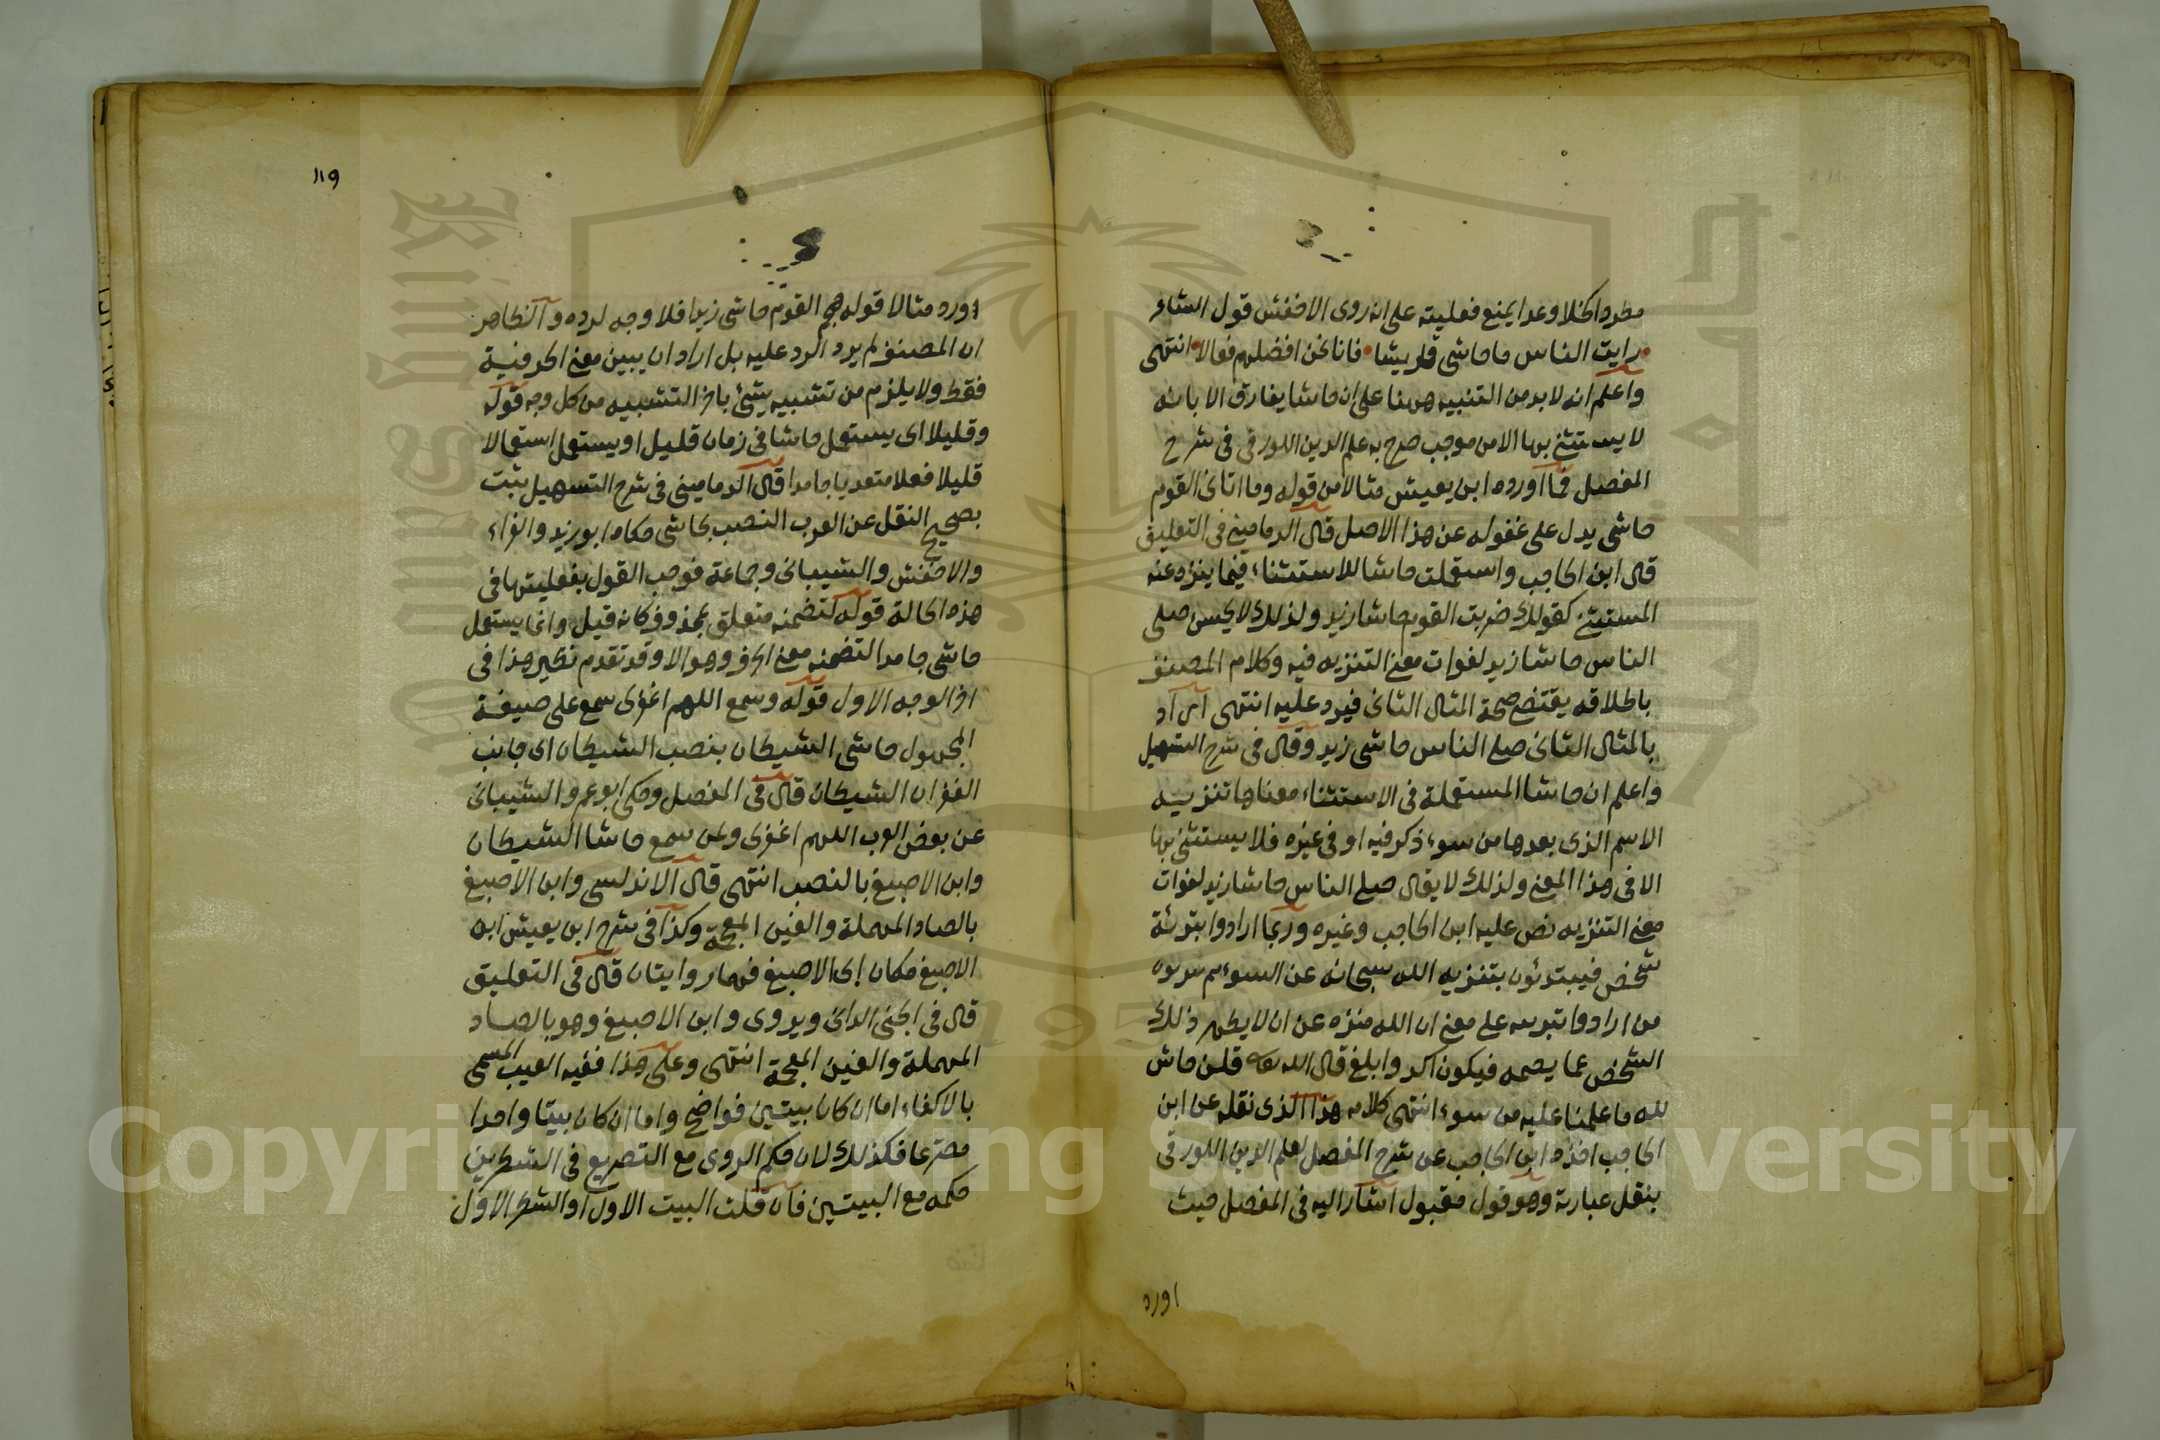 مطردا كخلا وعدا يمنع فعليته على انه روى الاخفش قول الشاعر
رايت الناس ما حاشى قريشا فانا نحن افضلهم فعالا انتهى
واعلم انه لا بد من التنبيه ههنا على ان حاشا يفارق الا بانه
لا يستثنى بها الا من موجب صرح به علم الدين اللورقى فى شرح
المفصل فما اورده ابن يعيش مثالا من قوله وما اتانى القوم
حاشى يدل على غفوله عن هذا الاصل قال الدمامينى فى التعليق
قال ابن الحاجب واستعملت حاشا للاستثناء فيما ينزه عنه
المستثنى كقولك ضربت القوم حاشا زيد ولذلك لا يحسن صلى
الناس حاشا زيد لفوات معنى التنزيه فيه وكلام المصنف
باطلاقه يقتضى صحة المثال الثانى فيرد عليه انتهى اراد
بالمثال الثانى صلى الناس حاشى زيد وقال فى شرح التسهيل
واعلم ان حاشا المستعملة فى الاستثناء معناها تنزيه
الاسم الذى بعدها من سوء ذكر فيه او فى غيره فلا يستثنى بها
الا فى هذا المعنى ولذلك لا يقال صلى الناس حاشا زيد لفوات
معنى التنزيه نص عليه ابن الحاجب وغيره وربما ارادوا تبرئة
شخص فيبتدئون بتنزيه الله سبحانه عن السوء ثم
من ارادوا تبرئته على معنى ان الله منزه عن ان لا يطهر ذلك
الشخص عما يصمه فيكون اكد وابلغ قال الله تعالى قلن حاش
لله ما علمنا عليه من سوء انتهى كلامه هذا الذى نقله عن ابن
الحاجب اخذه ابن الحاجب عن شرح المفصل لعلم الدين اللورقى
بنقل عبارته وهو قول مقبول اشار اليه فى المفصل حيث
اورد
١١٩
اورد مثالا قوله هجم القوم حاشى زيدا فلا وجه لرده والظاهر
ان المصنف لم يرد الرد عليه بل اراد ان يبين معنى الحرفية
فقط ولا يلزم من تشبيه شئ باخر التشبيه من كل وجه قوله
وقليلا اى يستعمل حاشا فى زمان قليل او يستعمل استعمالا
قليلا فعلا متعديا جامدا قال الدمامينى فى شرح التسهيل ثبت
بصحيح النقل عن العرب النصب بحاشى حكاه ابو زيد والفراء
والاخفش والشيبانى وجماعة فوجب القول بفعليتها فى
هذه الحالة قوله لتضمنه متعلق بمحذوف كانه قيل وانما يستعمل
حاشى جامدا لتضمنه معنى الحرف وهو الا وقد تقدم نظير هذا فى
اخر الوجه الاول قوله وسمع اللهم اغفرلى سمع على صيغة
المجهول حاشى الشيطان بنصب الشيطان اى جانب
الغفران الشيطان قال فى المفصل وحكى ابو عمرو الشيبانى
عن بعض العرب اللهم اغفرلى ولمن سمع حاشا الشيطان
وابن الاصبغ بالنصب انتهى قال الاندلسى وابن الاصبغ
بالصاد المهملة والغين المعجمة وكذا فى شرح ابن يعيش ابن
الاصبغ مكان ابى الاصبغ فهما روايتان قال فى التعليق
قال فى الجنى الدانى ويروى وابن الاصبغ وهو بالصاد
المهملة والغين المعجمة انتهى وعلى هذا ففيه العيب المسمى
بالاكفاء اما ان كان بيتين فواضح واما ان كان بيتا واحدا
مصرعا فكذلك لان حكم الروى مع التصريع فى الشطرين
حكمه مع البيتين فان قلت البيت الاول او الشطر الاول
Copyright King Saud University